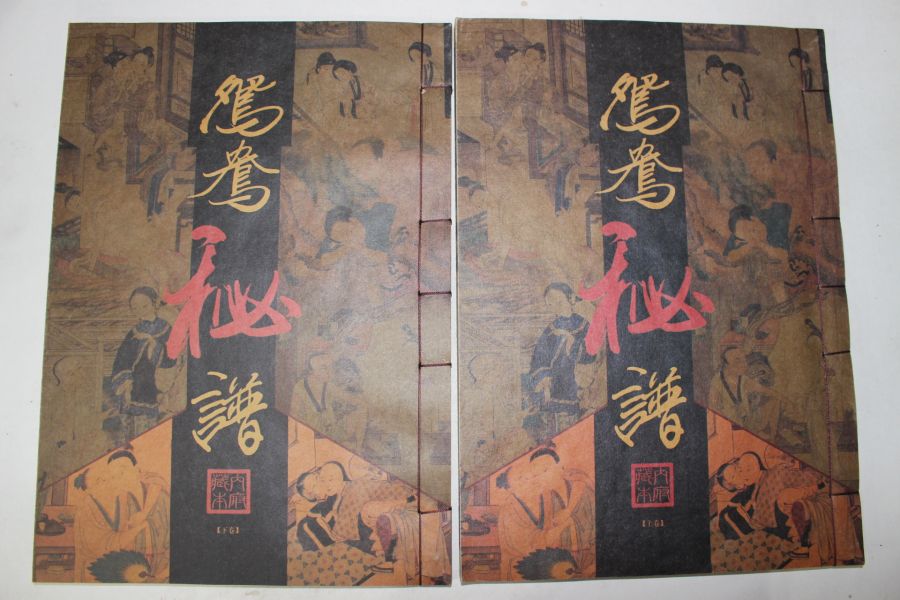 鴛鴦秘譜
内府藏本
【下卷】
鴛鴦秘譜
内府藏本
【上卷】